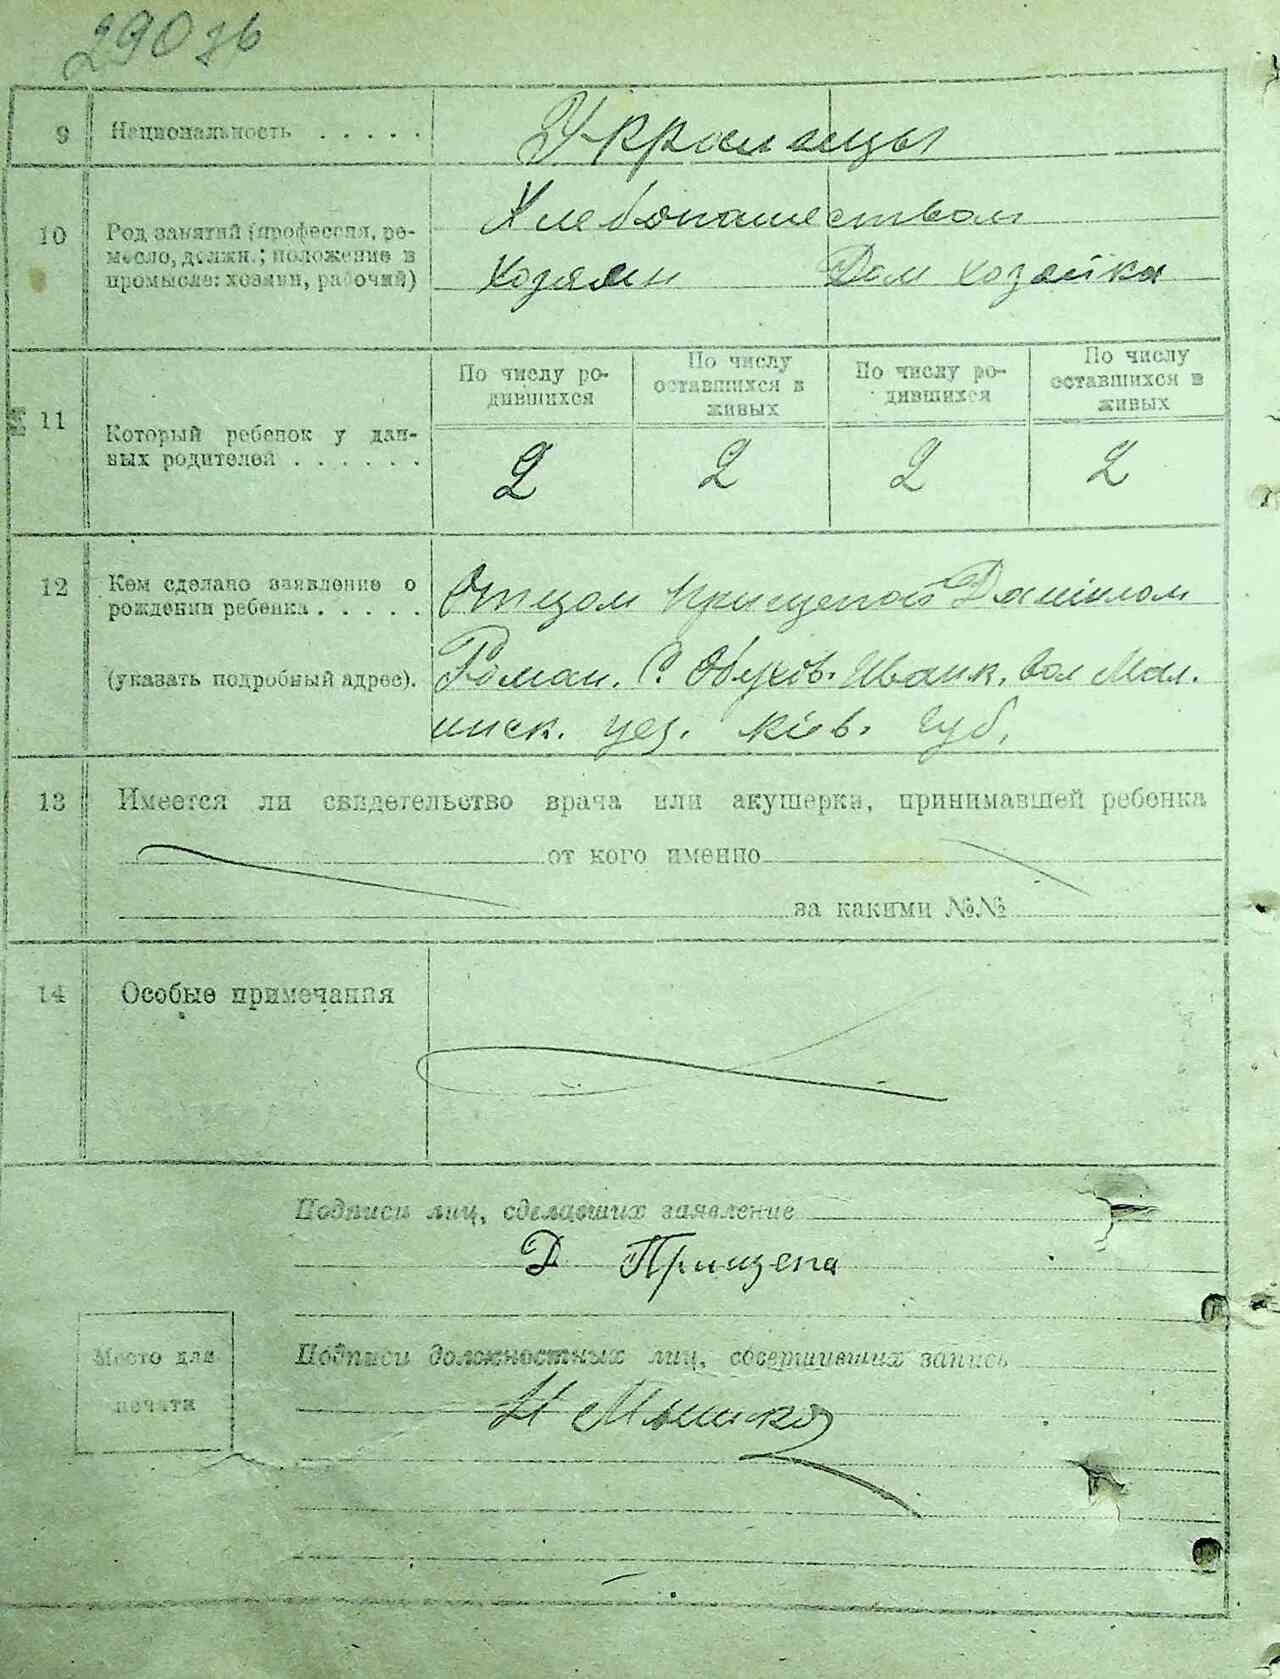 290 зв
9 Национальность . . . . . Украинцы
Хлебопашеством
10 Род занятий (профессия, ре-
месло, должн.; положение в
промысле: хозяин, рабочий)
Хозяин Дом хозяйка
11 Который ребенок у дан-
ных родителей . . . . . .
По числу ро-
дившихся
По числу
оставшихся в
живых
По числу ро-
дившихся
По числу
оставшихся в
живых
2 2 2 2
12 Кем сделано заявление о
рождении ребенка . . . . .
(указать подробный адрес).
Отцом Прищепой Данилом
Роман. С. Обухов. Иванк. вол Мал.
инск. уез. Киев. губ.
13 Имеется ли свидетельство врача или акушерки, принимавшей ребенка
от кого именно
за какими №№
14 Особые примечания
Подписи лиц, сделавших заявление
Д Прищепа
Место для
печати
Подписи должностных лиц, совершивших запись